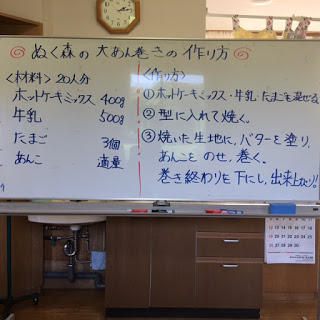 ぬく森の大あん巻きの作り方
<材料> 20人分
ホットケーキミックス 400g
牛乳 500g
たまご 3個
あんこ 適量
<作り方>
①ホットケーキミックス・牛乳・たまごを混ぜる
②型に入れて焼く。
③焼いた生地に、バターを塗り、
あんこをのせ、巻く。
巻き終わりを下にし、出来上がり!!